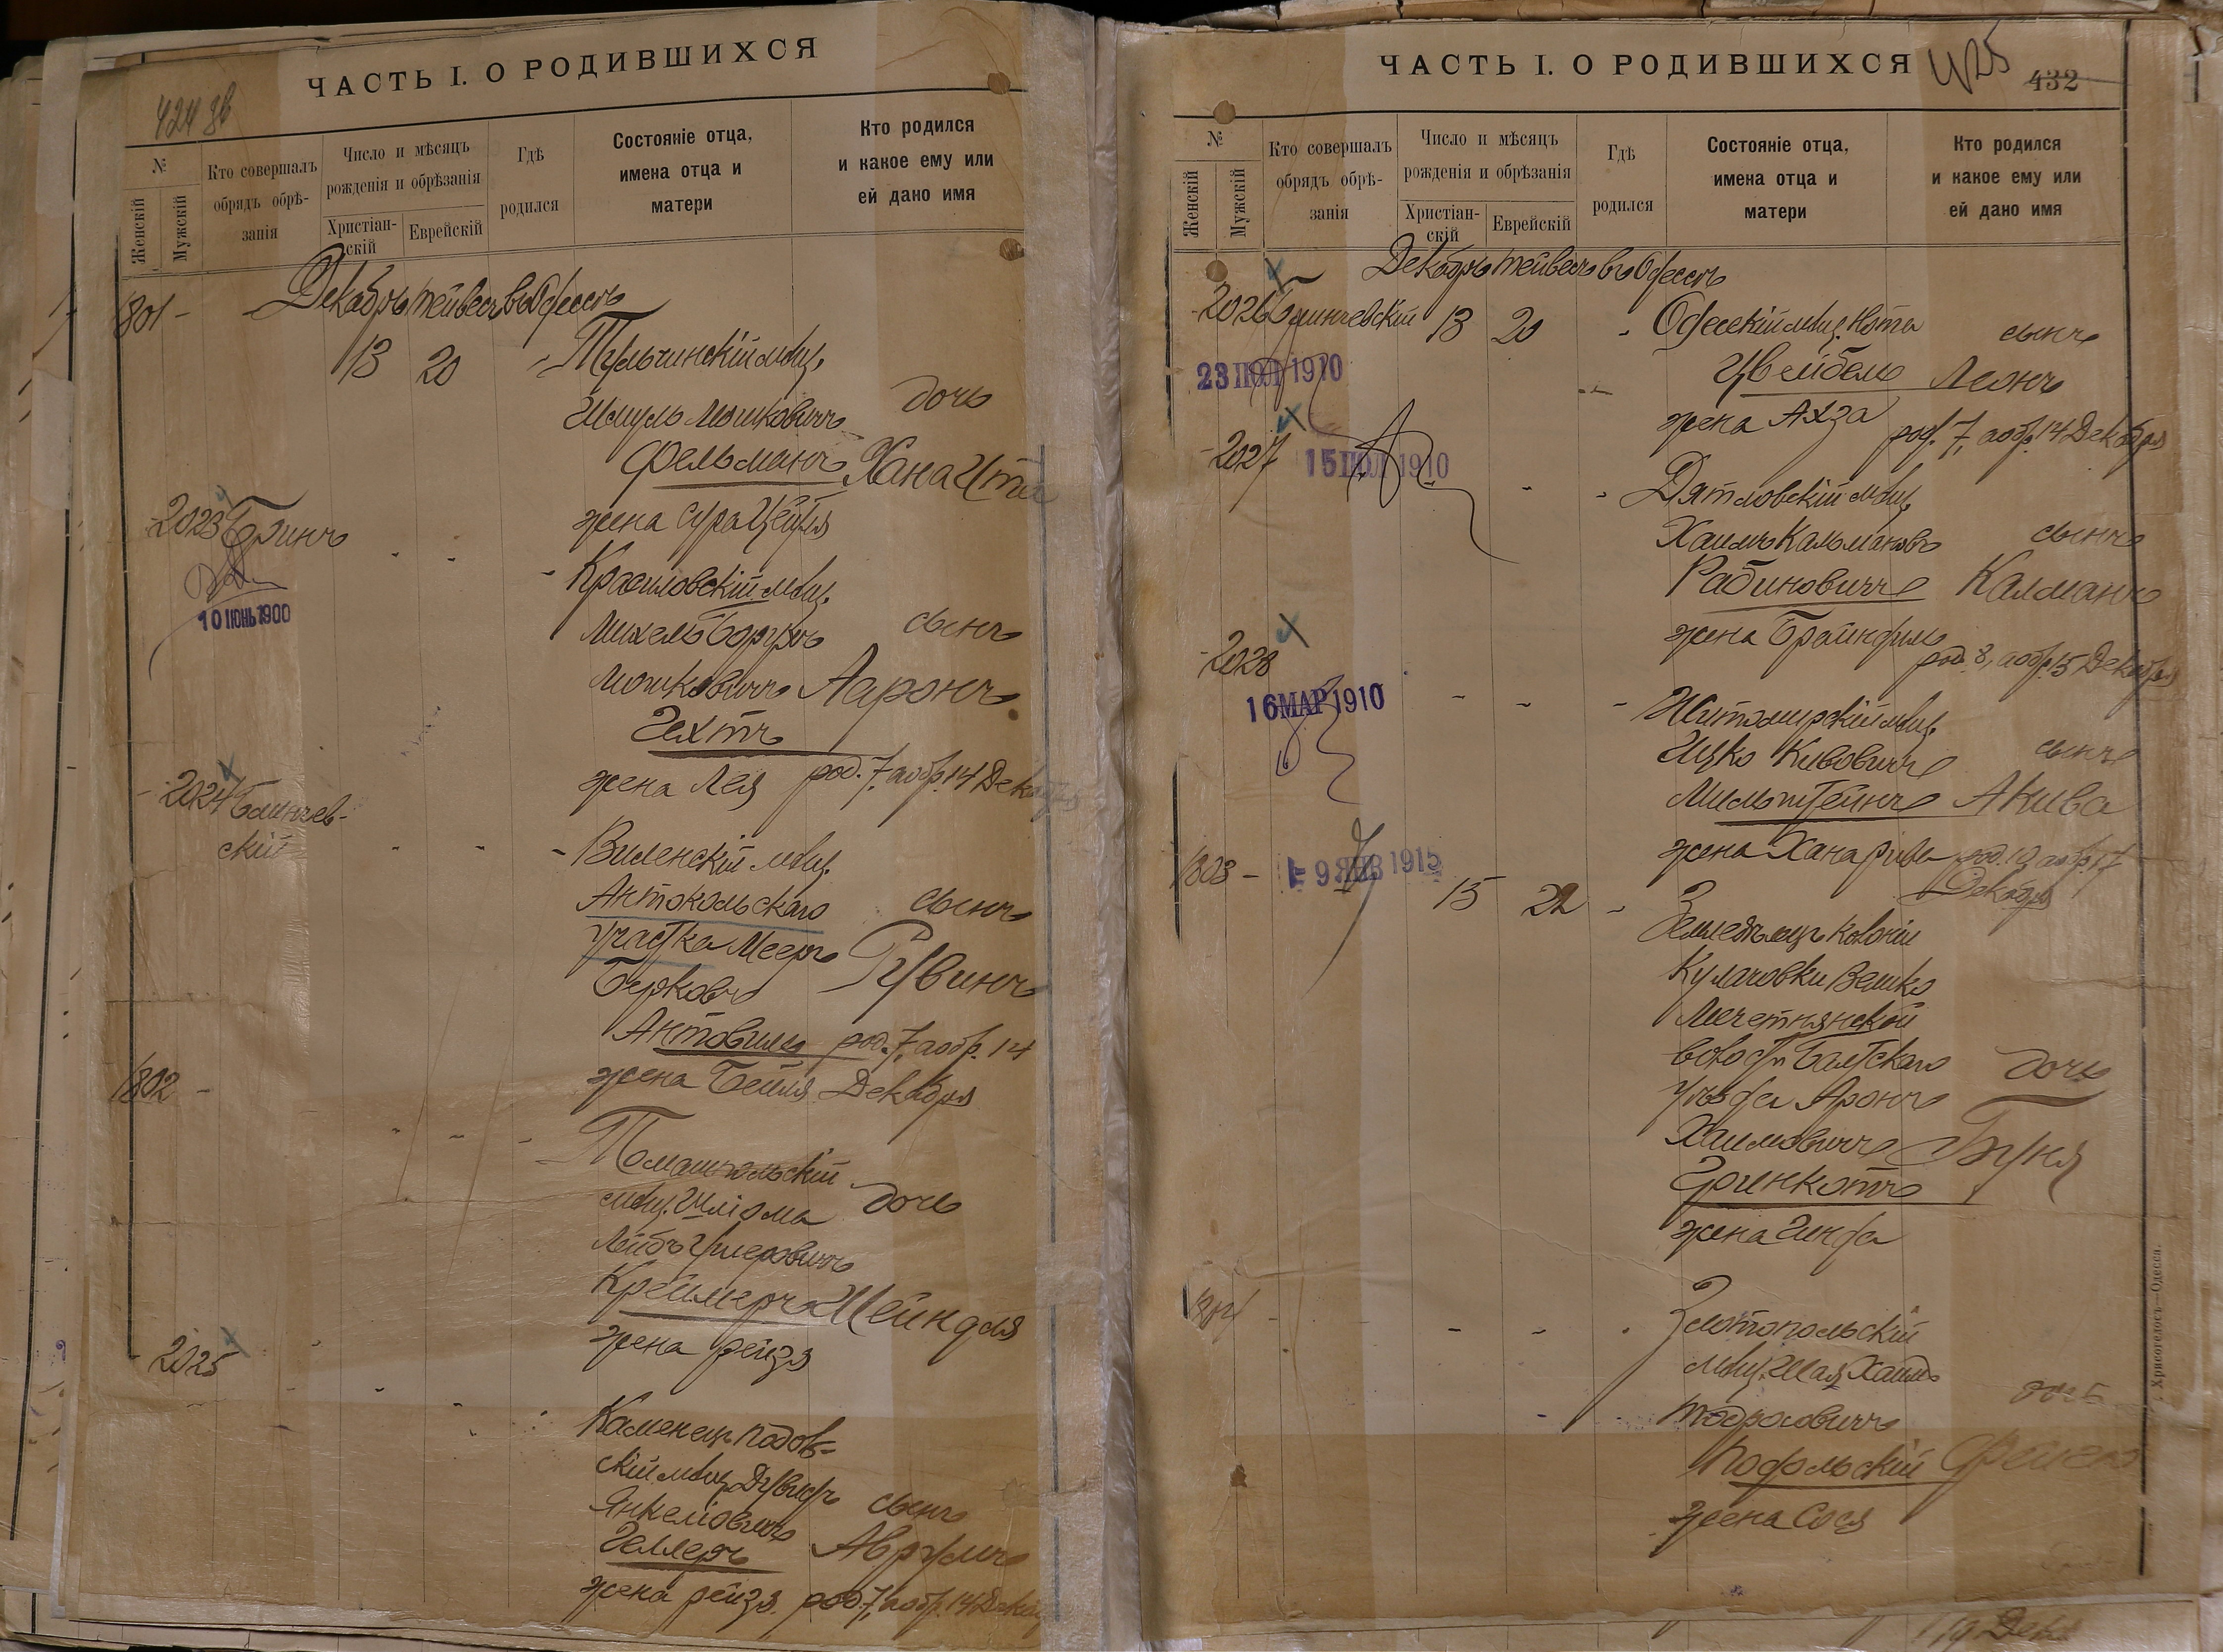 ЧАСТЬ I. О РОДИВШИХСЯ
424 зв
№
Женскій
Мужскій
Кто совершалъ
обрядъ обрѣ-
занія
Число и мѣсяцъ
рожденія и обрѣзанія
Христіан-
скій
Еврейскій
Гдѣ
родился
Состояніе отца,
имена отца и
матери
Кто родился
и какое ему или
ей дано имя
Декабрь тейвесъ въ Одессѣ
1801 -
13 20 - Тульчинскій мѣщ.
Шмуль Мошковичъ дочь
Фельманъ Хана Ита
жена Сура Цейтля
2023 Бринъ
10 ІЮНЬ 1900
- - - Красиловскій мѣщ.
Михель Борухъ сынъ
Мошковичъ Ааронъ
Гехтъ
жена Лея род. 7, а обр. 14 Декабря
2024 Блинчев-
скій
- - - Виленскій мѣщ.
Антокольскаго сынъ
участка Мееръ Рувинъ
Берковъ
Антовиль род. 7, а обр. 14
жена Бейля Декабря
1802 -
- - - Томашпольскій
мѣщ. Шліома дочь
Лейбъ Ушеровичъ
Креймеръ Шейндля
жена Рейзя
2025
- - - Каменец Подол-
скій мѣщ. Дувидъ сынъ
Янкеліовичъ
Геллеръ Аврумъ
жена Рейзя род. 7, а обр. 14 Декаб
ЧАСТЬ I. О РОДИВШИХСЯ
425
432
№
Женскій
Мужскій
Кто совершалъ
обрядъ обрѣ-
занія
Число и мѣсяцъ
рожденія и обрѣзанія
Христіан-
скій
Еврейскій
Гдѣ
родился
Состояніе отца,
имена отца и
матери
Кто родился
и какое ему или
ей дано имя
Декабрь тейвесъ въ Одессѣ
2026 Блинчевскій 13 20 - Одесскій мѣщ. Нота сынъ
23 ІЮЛ 1910
Цвейбель Леонъ
жена Ахза род. 7, а обр. 14 Декабря
2027
15 ІЮЛ 1910
- - Дятловскій мѣщ.
Хаимъ Кальмановъ сынъ
Рабиновичъ Калманъ
жена Брайндиль
род. 8, а обр. 15 Декабря
2028
16 МАР 1910
- - - Житомирскій мѣщ.
Ицко Кивовичъ сынъ
Мильштейнъ Акива
жена Хана Рива род. 10, а обр. 17
Декабря
1803 -
9 ЯНВ 1915
15 22 - Земледѣлецъ колоніи
Кулачовки Велико
Мечетнянской
волости Балтскаго дочь
уѣзда Аронъ
Хаимовичъ Буня
Гринкотъ
жена Гинда
1804 -
- - - Златопольскій
мѣщ. Шая Хаимъ
Тодросовичъ дочь
Подольскій Фейга
жена Сося
Хрисогелосъ—Одесса.